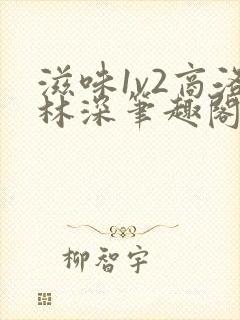 滋味1v2高洛
林深筆趣閣
柳智宇